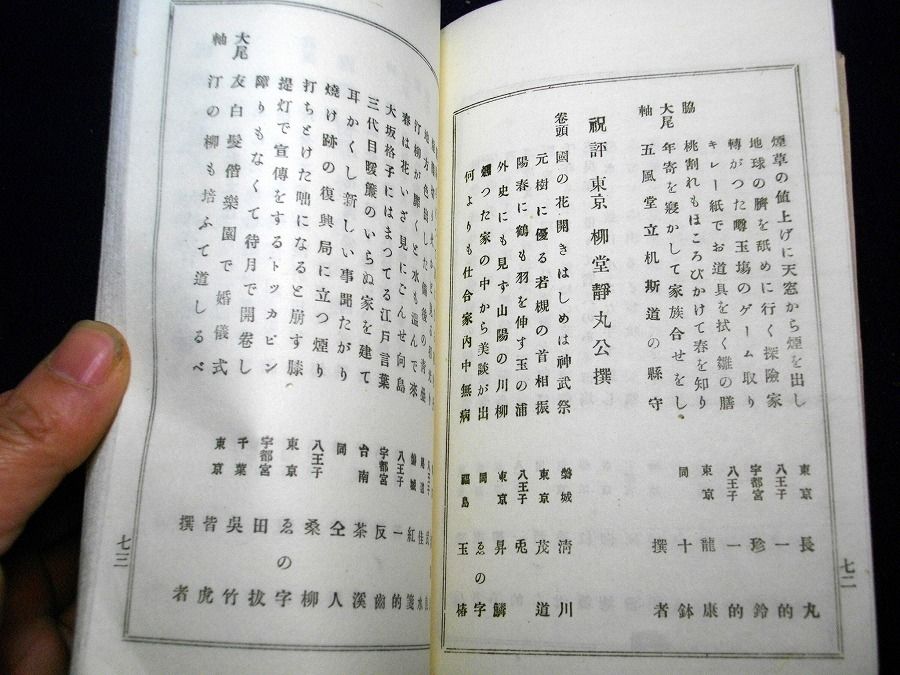 煙草の値上げに天窓から煙を出し 東京 長丸
地球の臍を舐めに行く探險家 八王子 一的
轉がつた噂玉塲のゲーム取り 宇都宮 珍鈴
キレー紙でお道具を拭く雛の膳 八王子 一的
脇 桃割れもほころびかけて春を知り 東京 龍康
大尾 年寄を寢かして家族合せをし 同 十鉢
軸 五風堂立机斯道の縣守 撰者
祝評 東京 柳堂靜丸公撰
卷頭 國の花開きはじめは神武祭 磐城 淸川
元樹に優る若槻の首相振 東京 茂道
陽春に鶴も羽を伸す玉の浦 八王子 兎
外史にも見す山陽の川柳 東京 昇鱗
翻つた家の中から美談が出 同 ゑの字
何よりも仕合家内中無病 福島 玉椿
七二
汀柳が靡くと水も溫んで來
春は花いざ見にごんせ向島 磐城 紅箋
大坂格子にはまつてる江戸言葉 八王子 一的
三代目暖簾のいらぬ家を建て 宇都宮 反齒
耳かくし新しい事聞たがり 台南 茶溪
燒け跡の復興局に立つ煙り 同 仝人
打ちとけた咄になると崩す膝 八王子 桑柳
提灯で宣傳をするトッカピン 東京 ゑの字
障りもなくて待月で開卷し 宇都宮 田抜
大尾 友白髮偕樂園で婚儀式 千葉 吳竹
軸 汀の柳も培ふて道しるべ 東京 皆虎
撰者
七三